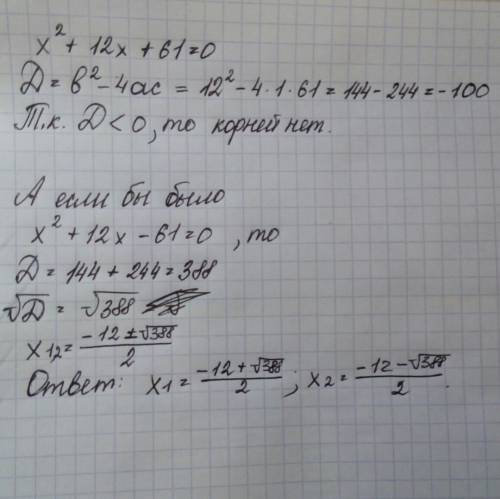 x² + 12x + 61 = 0
D = b² - 4ac = 12² - 4 · 1 · 61 = 144 - 244 = -100
Т.к. D < 0, то корней нет.
А если бы было
x² + 12x - 61 = 0 , то
D = 144 + 244 = 388
√D = √388
x₁,₂ = (-12 ± √388)/2
Ответ: x₁ = (-12 + √388)/2 ; x₂ = (-12 - √388)/2 .